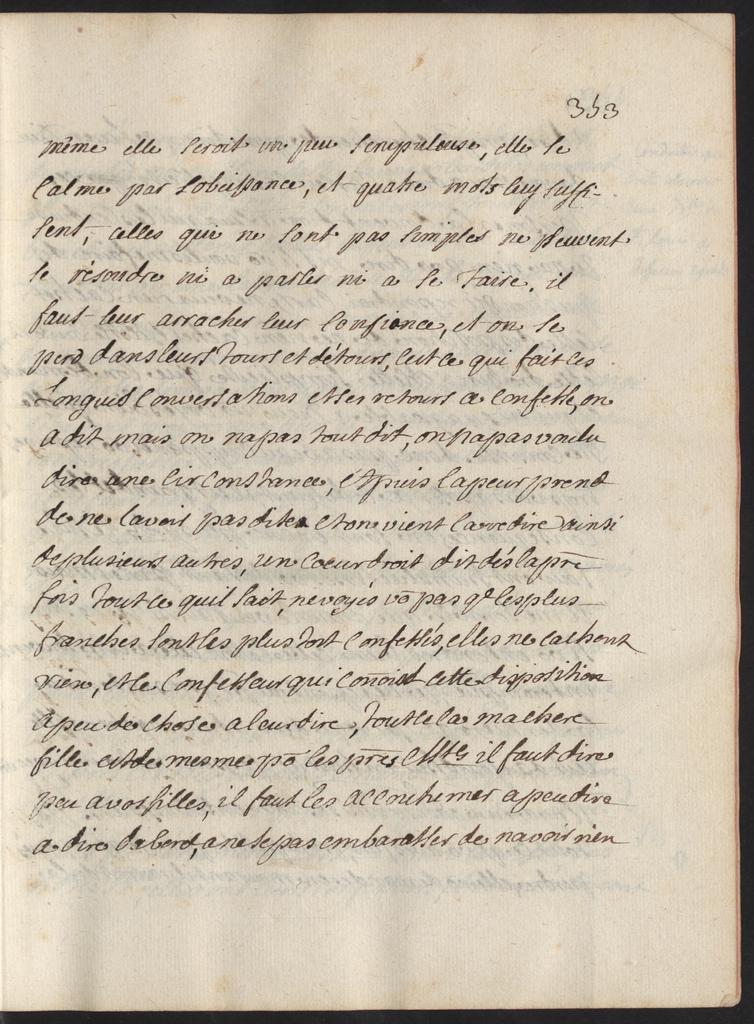 353
même elle seroit un peu scrupuleuse, elle se
calme par Lobeissance, et quatre mots luy suffi-
sent, celles qui ne sont pas simples ne peuvent
se résoudre ni a parler ni a se Taire, il
faut leur arracher leur Confience, et on se
perd dans leurs tours et détours, cest ce qui fait ces
Longues Conversations et ses retours a confesse, on
a dit mais on na pas tout dit, on na pas voulu
dire une circonstance, et puis la peur prend
de ne lavoir pas dites et on vient la redire ainsi
de plusieurs autres, un coeur droit dit dés la pre
fois tout ce quil sait, ne voyés vo pas q les plus
franches sont les plus tost confessés, elles ne cachent
rien, et le Confesseur qui connoist cette disposition
a peu de chose a leur dire, tout cela ma chere
fille est de mesme po les pres il faut dire
peu a vos filles, il faut les accoutumer a peu dire
a dire dabord, a ne se pas embarasser de navoir rien